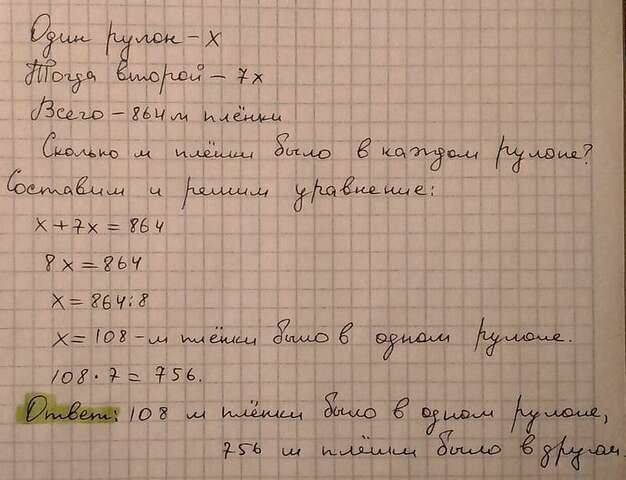 Один рулон – x
Тогда второй – 7x
Всего – 864 м плёнки
Сколько м плёнки было в каждом рулоне?
Составим и решим уравнение:
x + 7x = 864
8x = 864
x = 864:8
x = 108 – м плёнки было в одном рулоне.
108 · 7 = 756.
Ответ: 108 м плёнки было в одном рулоне,
756 м плёнки было в другом.